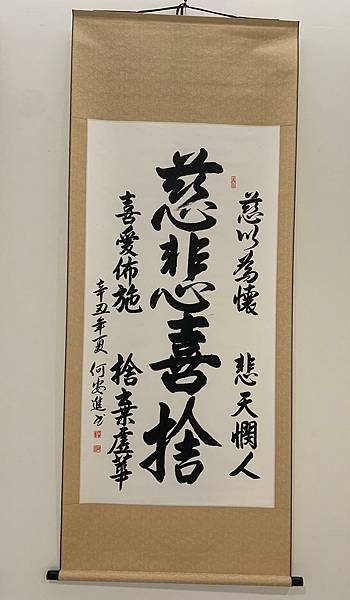 慈以為懷 悲天憫人
慈悲喜捨
喜愛佈施 捨棄虛華
辛丑年夏 何安進書